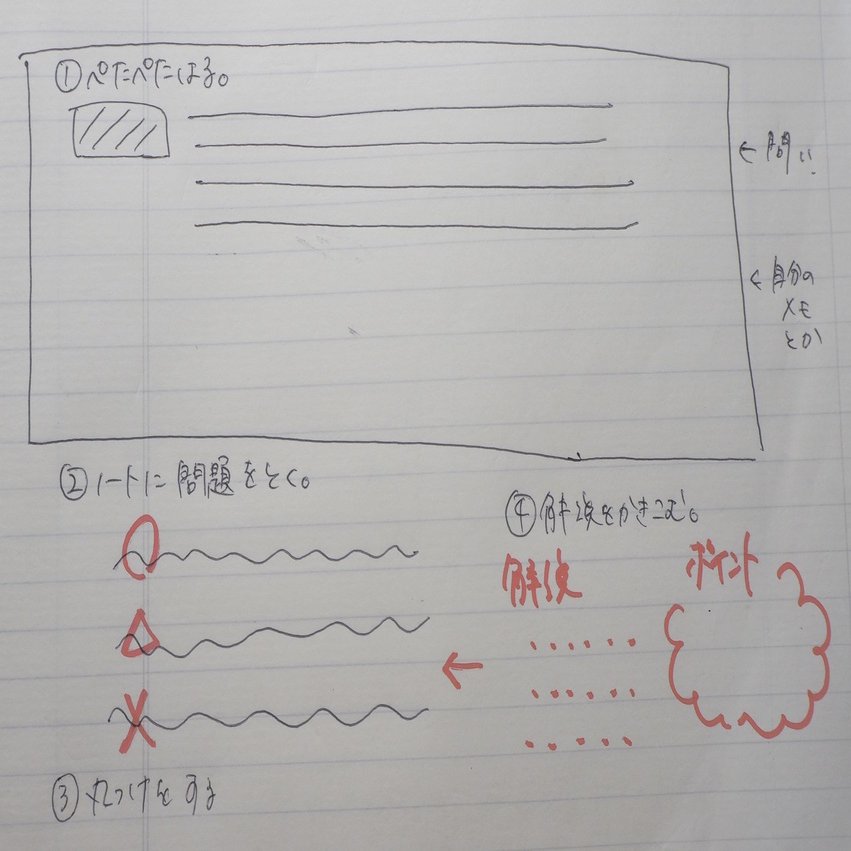 ①ぺたぺたはる。
←問い
←自分の
メモ
とか
②ノートに問題をとく。
④解説をかきこむ。
解説
ポイント
③丸つけをする